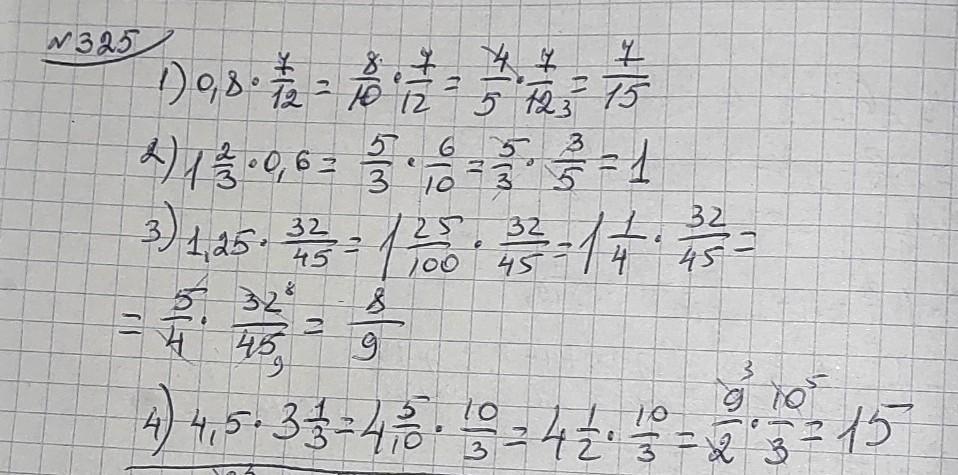 №325
1) 0,8 · 7/12 = 8/10 · 7/12 = 4/5 · 7/12 3 = 7/15
2) 1 2/3 · 0,6 = 5/3 · 6/10 = 5/3 · 3/5 = 1
3) 1,25 · 32/45 = 1 25/100 · 32/45 = 1 1/4 · 32/45 =
= 5/4 · 32 8/45 9 = 8/9
4) 4,5 · 3 1/3 = 4 5/10 · 10/3 = 4 1/2 · 10/3 = 9 3/2 · 10 5/3 = 15